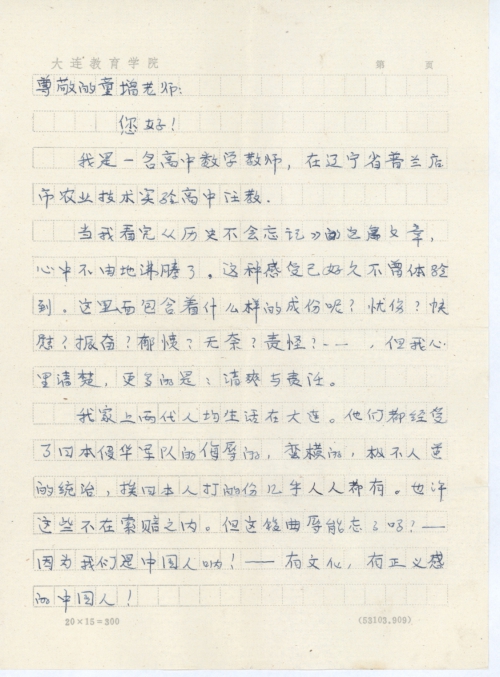 大连教育学院 第 页
尊敬的童增老师:
您好!
我是一名高中数学教师,在辽宁省普兰店
市农业技术实验高中任教.
当我看完《历史不会忘记》的文章,
心中不由地沸腾了。这种感受已好久不曾体验
到。这里面包含着什么样的成份呢?忧伤?快
慰?振奋?郁愤?无奈?责怪?——,但我心
里清楚,更多的是:清爽与责任。
我家上两代人均生活在大连。他们都经受
了日本侵华军队的侮辱的,蛮横的,极不人道
的统治,挨日本人打的份几乎人人都有。也许
这些不在索赔之内。但这段曲辱能忘了吗?——
因为我们是中国人哟!——有文化,有正义感
的中国人!
20×15=300 (53103.909)